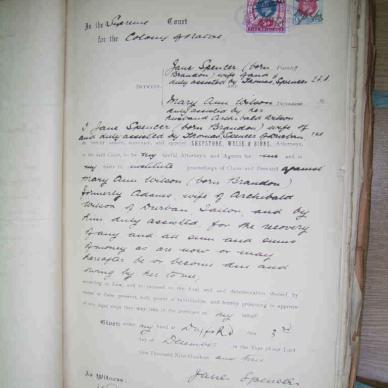 In the Supreme Court
for the Colony of Natal
Jane Spencer (born
Brandon) wife of and
duly assisted by Thomas Spencer
BETWEEN
and
Mary Ann Wilson
duly assisted by her
husband Archibald Wilson
I Jane Spencer (born Brandon) wife of
and duly assisted by Thomas Spencer
do hereby nominate, constitute, and appoint GREYSTOKE, WYLIE & BINNS, Attorneys,
of the said Court, to be my lawful Attorneys and Agents for me and in
my name to institute proceedings of Claim and Demand against
Mary Ann Wilson (born Brandon)
formerly Adams, wife of Archibald
Wilson of Durban Sailor, and by
him duly assisted, for the recovery
of any and all sum and sums
of money as are now or may
hereafter be or become due and
owing by her to me,
according to Law, and to proceed to the final end and determination thereof by
virtue of these present, with power of substitution, and hereby promising to approve
of any legal steps they may take in the premises on my behalf.
Given under my hand at this 3rd
day of December in the Year of our Lord
One Thousand Nine Hundred and
Jane Spencer
As Witness: